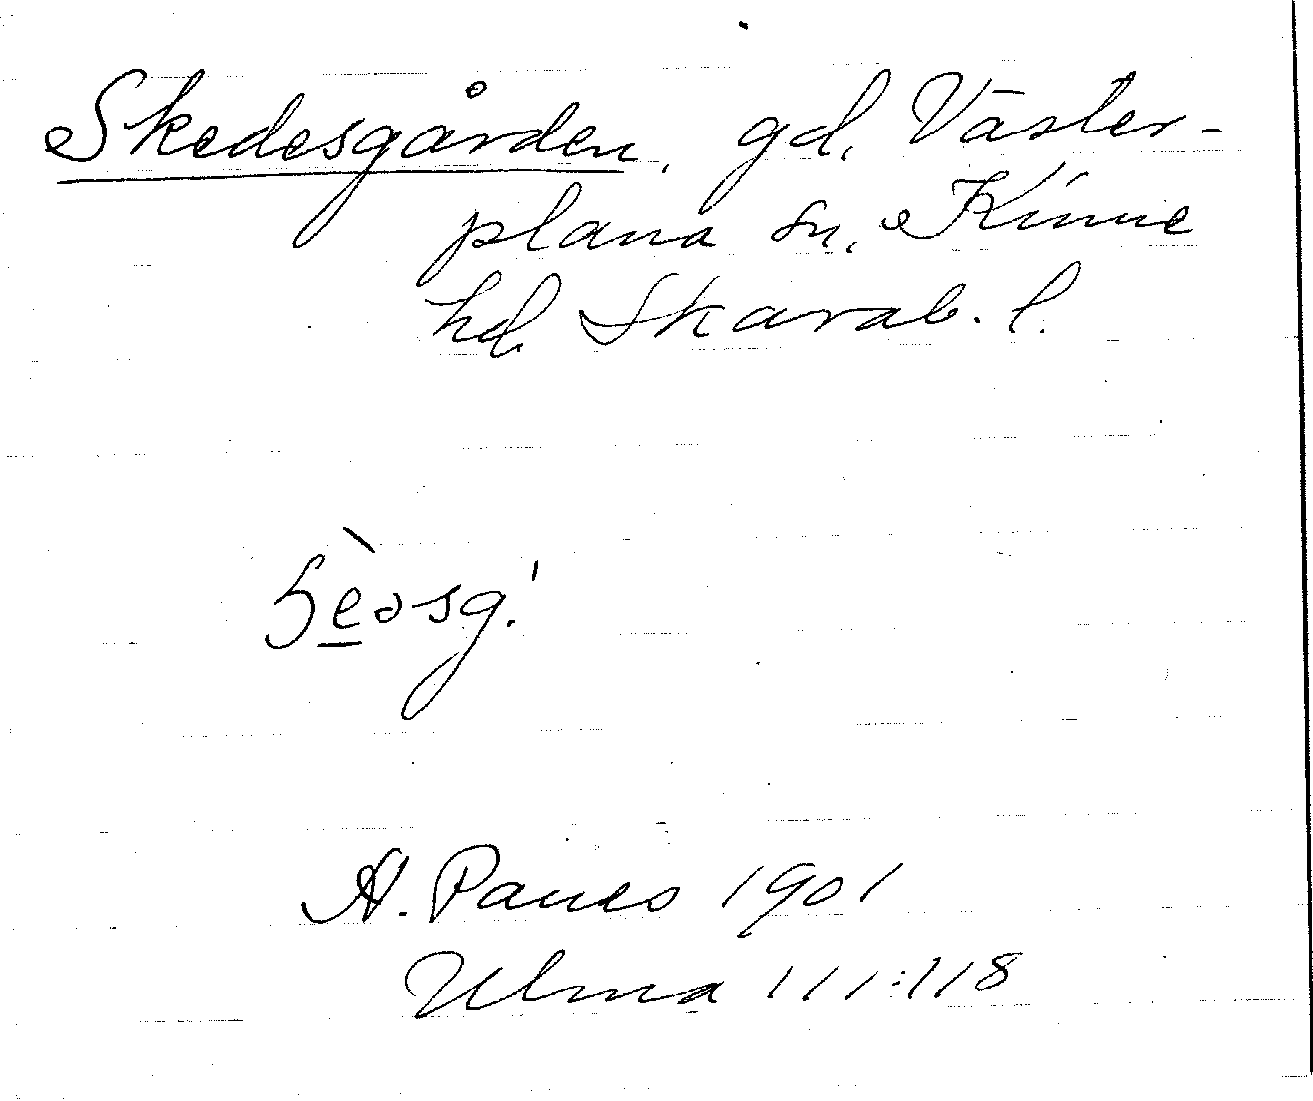 Skedesgården, gd, Väster-
plana sn, Kinne
hd, Skarab. l.
ꜧèəsg.'
A. Paues 1901
Ulma 111:118